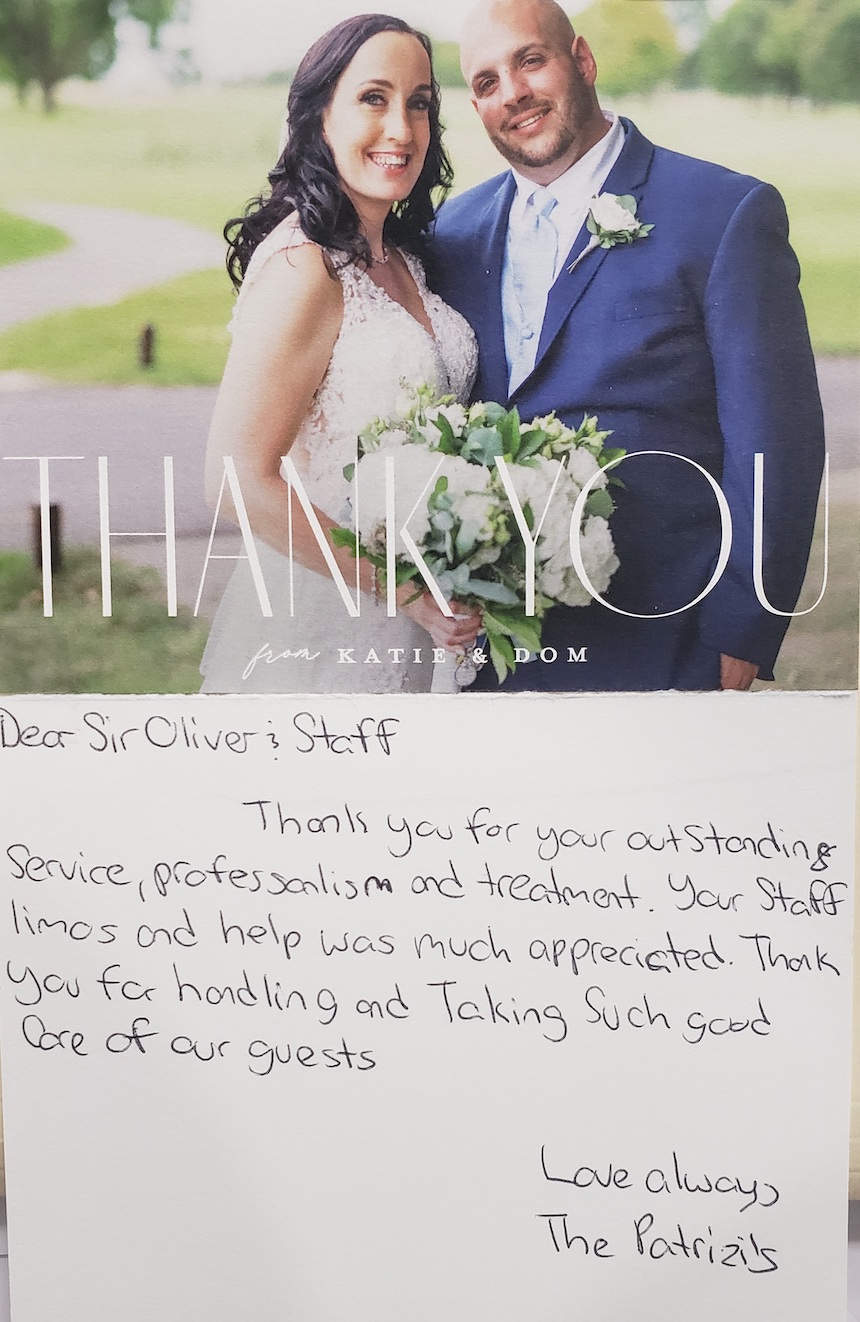 THANK YOU
from KATIE & DOM
Dear Sir Oliver & Staff
Thank you for your outstanding
Service, professonlism and treatment. Your Staff
limos and help was much appreciated. Thank
you for handling and Taking Such good
Care of our guests
Love always
The Patrizi's